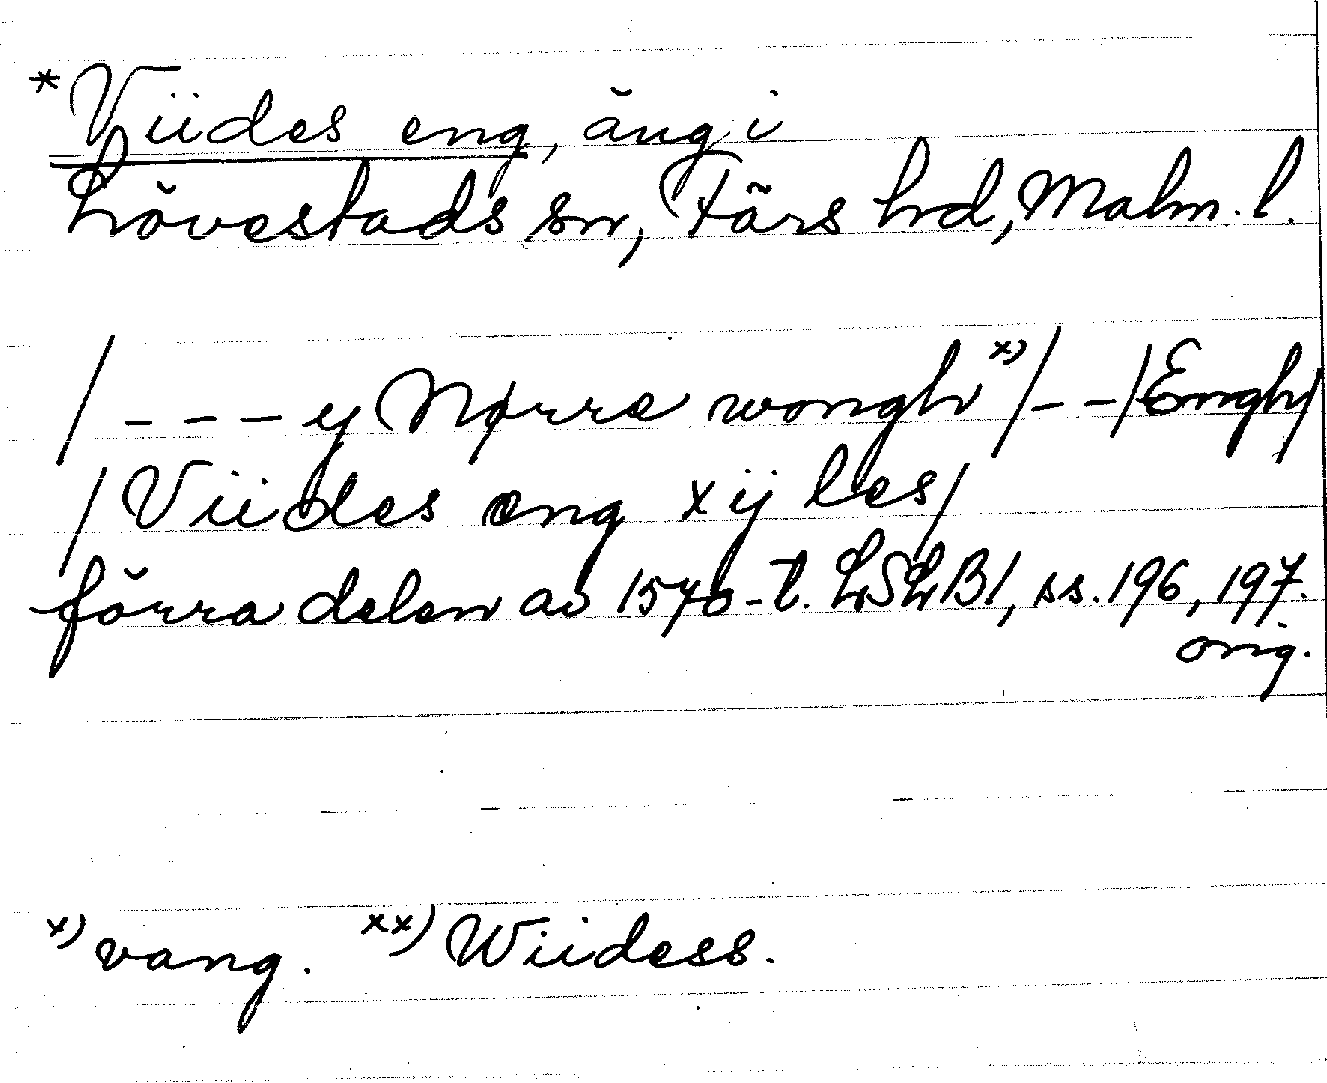 *Viides eng, äng i
Lövestads sn, Färs hd, Malm. l.
/ _ _ _ y Nørre wongh x) / _ _ / Engh /
/ Viides eng xij les /
förra delen av 1570-t. LSLB1, ss. 196, 197.
orig.
x) vang. xx) Wiidess.